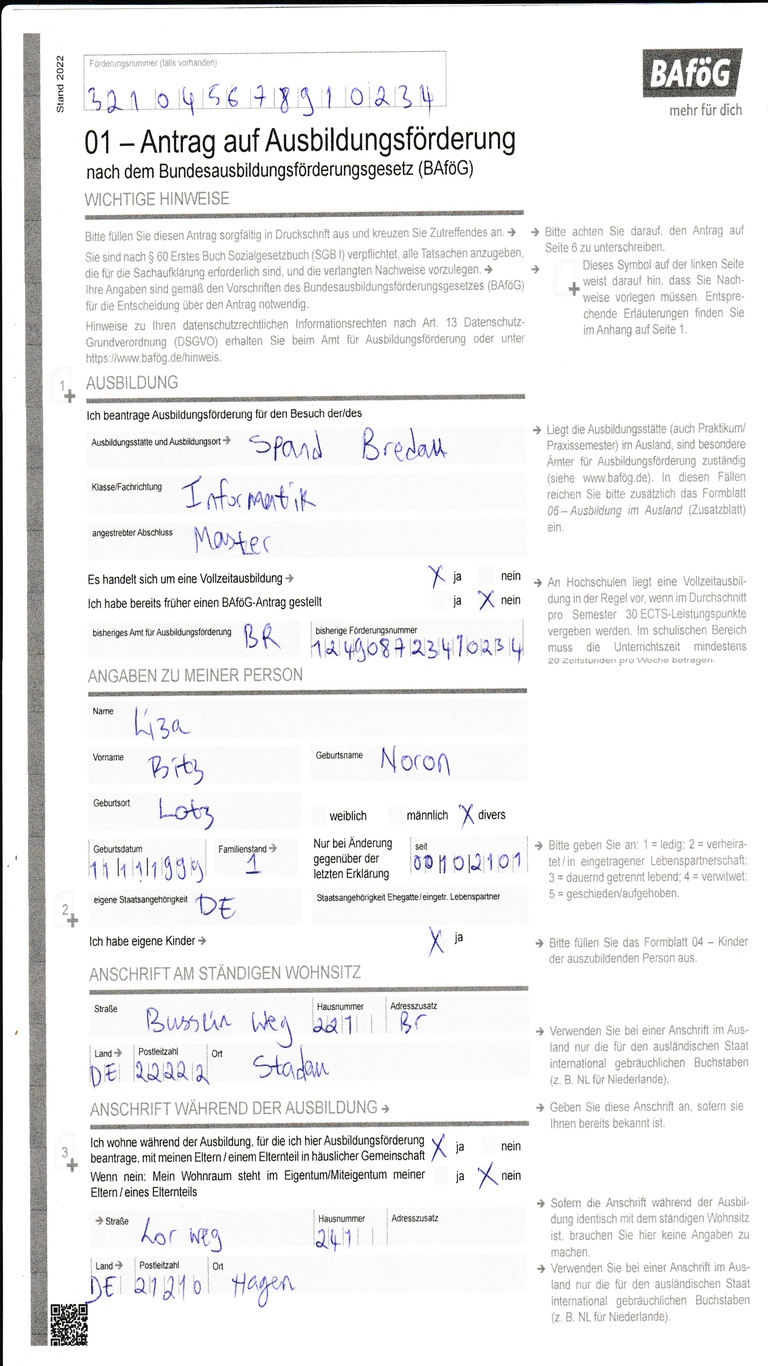 Stand 2022
Förderungsnummer (falls vorhanden)
321045678910234
BAföG
mehr für dich
01 – Antrag auf Ausbildungsförderung
nach dem Bundesausbildungsförderungsgesetz (BAföG)
WICHTIGE HINWEISE
Bitte füllen Sie diesen Antrag sorgfältig in Druckschrift aus und kreuzen Sie Zutreffendes an. →
Sie sind nach § 60 Erstes Buch Sozialgesetzbuch (SGB I) verpflichtet, alle Tatsachen anzugeben,
die für die Sachaufklärung erforderlich sind, und die verlangten Nachweise vorzulegen. →
Ihre Angaben sind gemäß den Vorschriften des Bundesausbildungsförderungsgesetzes (BAföG)
für die Entscheidung über den Antrag notwendig.
Hinweise zu Ihren datenschutzrechtlichen Informationsrechten nach Art. 13 Datenschutz-
Grundverordnung (DSGVO) erhalten Sie beim Amt für Ausbildungsförderung oder unter
https://www.bafög.de/hinweis.
→ Bitte achten Sie darauf, den Antrag auf
Seite 6 zu unterschreiben.
→ Dieses Symbol auf der linken Seite
weist darauf hin, dass Sie Nach-
weise vorlegen müssen. Entspre-
chende Erläuterungen finden Sie
im Anhang auf Seite 1.
1 AUSBILDUNG
Ich beantrage Ausbildungsförderung für den Besuch der/des
Ausbildungsstätte und Ausbildungsort → Spand Bredau
Klasse/Fachrichtung Informatik
angestrebter Abschluss Master
→ Liegt die Ausbildungsstätte (auch Praktikum/
Praxissemester) im Ausland, sind besondere
Ämter für Ausbildungsförderung zuständig
(siehe www.bafög.de). In diesen Fällen
reichen Sie bitte zusätzlich das Formblatt
06 – Ausbildung im Ausland (Zusatzblatt)
ein.
Es handelt sich um eine Vollzeitausbildung → X ja nein
Ich habe bereits früher einen BAföG-Antrag gestellt ja X nein
bisheriges Amt für Ausbildungsförderung BR bisherige Förderungsnummer
124908723410234
→ An Hochschulen liegt eine Vollzeitausbil-
dung in der Regel vor, wenn im Durchschnitt
pro Semester 30 ECTS-Leistungspunkte
vergeben werden. Im schulischen Bereich
muss die Unterrichtszeit mindestens
20 Zeitstunden pro Woche betragen.
ANGABEN ZU MEINER PERSON
Name Liza
Vorname Bitz Geburtsname Noron
Geburtsort Lotz weiblich männlich X divers
Geburtsdatum 11111999 Familienstand → 1 Nur bei Änderung
gegenüber der
letzten Erklärung seit 00102101
2 eigene Staatsangehörigkeit DE Staatsangehörigkeit Ehegatte/eingetr. Lebenspartner
Ich habe eigene Kinder → X ja
→ Bitte geben Sie an: 1 = ledig; 2 = verheira-
tet / in eingetragener Lebenspartnerschaft;
3 = dauernd getrennt lebend; 4 = verwitwet;
5 = geschieden/aufgehoben.
→ Bitte füllen Sie das Formblatt 04 – Kinder
der auszubildenden Person aus.
ANSCHRIFT AM STÄNDIGEN WOHNSITZ
Straße Busslin Weg Hausnummer 221 Adresszusatz Br
Land → DE Postleitzahl 22222 Ort Stadau
→ Verwenden Sie bei einer Anschrift im Aus-
land nur die für den ausländischen Staat
international gebräuchlichen Buchstaben
(z. B. NL für Niederlande).
ANSCHRIFT WÄHREND DER AUSBILDUNG →
→ Geben Sie diese Anschrift an, sofern sie
Ihnen bereits bekannt ist.
3 Ich wohne während der Ausbildung, für die ich hier Ausbildungsförderung
beantrage, mit meinen Eltern / einem Elternteil in häuslicher Gemeinschaft X ja nein
Wenn nein: Mein Wohnraum steht im Eigentum/Miteigentum meiner
Eltern / eines Elternteils ja X nein
→ Straße Lor weg Hausnummer 241 Adresszusatz
Land → DE Postleitzahl 21210 Ort Hagen
→ Sofern die Anschrift während der Ausbil-
dung identisch mit dem ständigen Wohnsitz
ist, brauchen Sie hier keine Angaben zu
machen.
→ Verwenden Sie bei einer Anschrift im Aus-
land nur die für den ausländischen Staat
international gebräuchlichen Buchstaben
(z. B. NL für Niederlande).